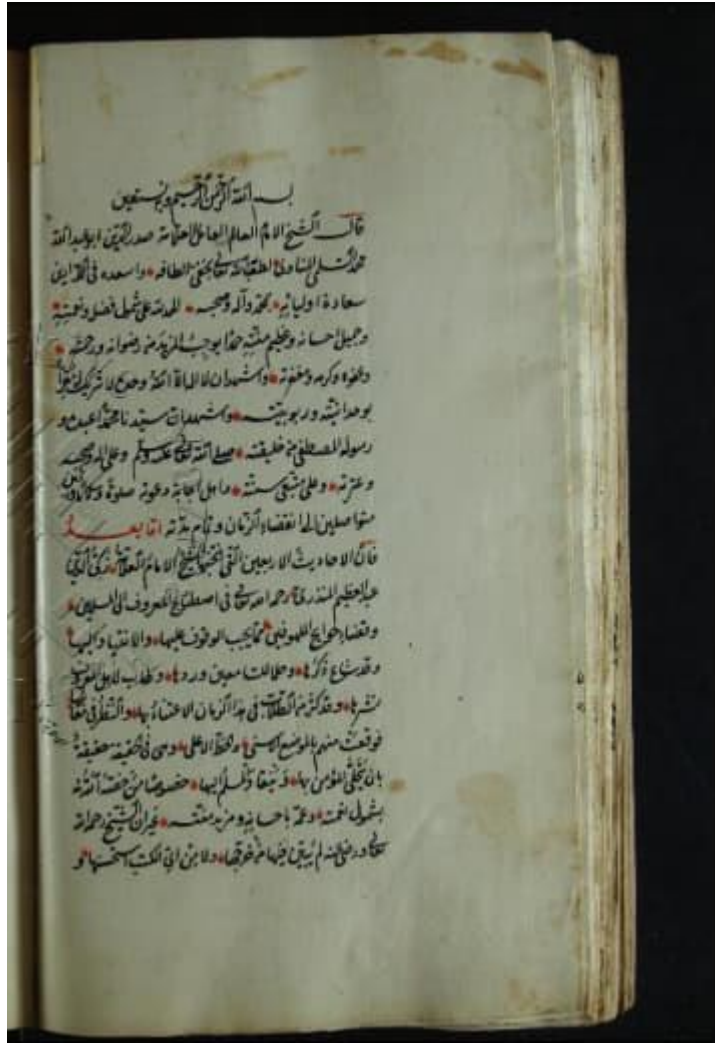 بسم الله الرحمن الرحيم وبه نستعين
قال الشيخ الامام العالم العامل العلامة صدر الدين ابو عبد الله
محمد السلمى المناوى لطف الله تعالى بخفى الطافه واسعده فى الدارين
سعادة اوليائه بمحمد وآله وصحبه الحمد لله على شمول فضله ونعمته
وجميل احسانه وعظيم منته حمدا يوجب المزيد من رضوانه ورحمته
وعفوه وكرمه ومغفرته واشهد ان لا اله الا الله وحده لا شريك له
بوحدانيته وربوبيته واشهد ان سيدنا محمدا عبده و
رسوله المصطفى من خليقته صلى الله تعالى عليه وسلم وعلى اله وصحبه
وعترته وعلى متبعى سنته واهل اجابة دعوته صلوة وسلاما
متواصلين الى انقضاء الزمان وتمام مدته اما بعد
فان الاحاديث الاربعين التى جمعها الشيخ الامام العلامة زكى الدين
عبد العظيم المنذرى رحمه الله تعالى فى اصطناع المعروف الى المسلمين
وقضاء حوائج الملهوفين مما يجب الوقوف عليها والانقياد اليها
وقد شاع ذكرها وحلا لنا معين وردها وطاب لاهل
نشرها وقد كثر من الطلاب فى هذا الزمان الاعتناء بها والنظر فى
فوقعت منهم بالموضع الاسنى والحظ الاعلى وهى فى الحقيقة حقيقة
بان يتحلى المؤمن بها المسلم اليها خصوصا من خصه الله
بشمول النعمة وعمه باحسانه ومزيد منته غير ان الشيخ رحمه الله
تعالى ورضى عنه لم يبين فيها من خرجها ولا من اى الكتب استخرجها و